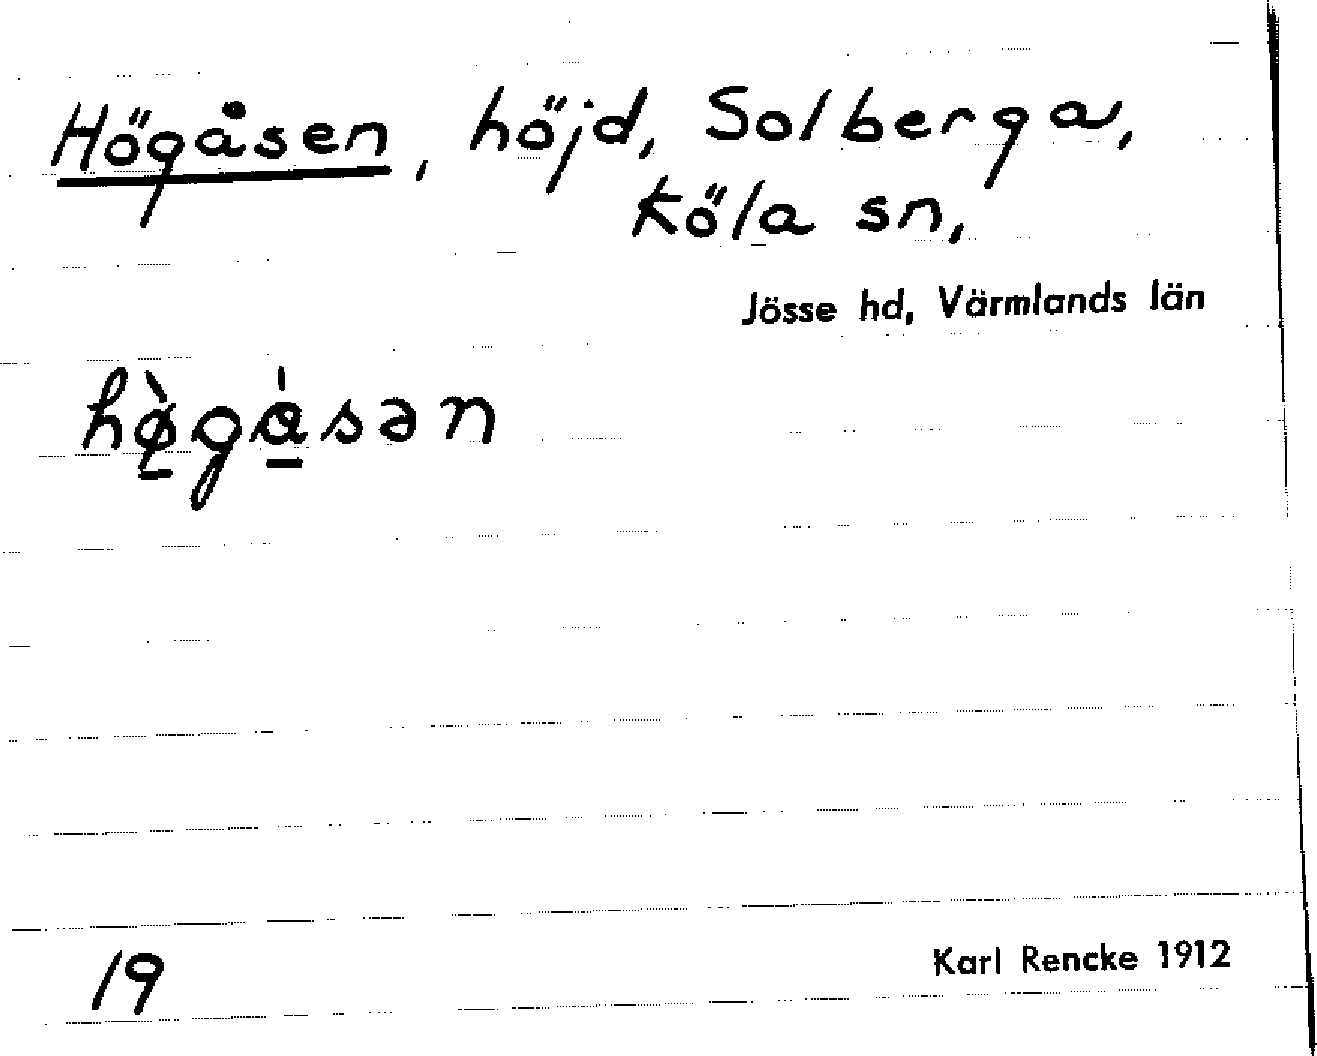 Högåsen, höjd, Solberga,
Köla sn,
Jösse hd, Värmlands län
hø̱̀gȧ̱sən
19
Karl Rencke 1912